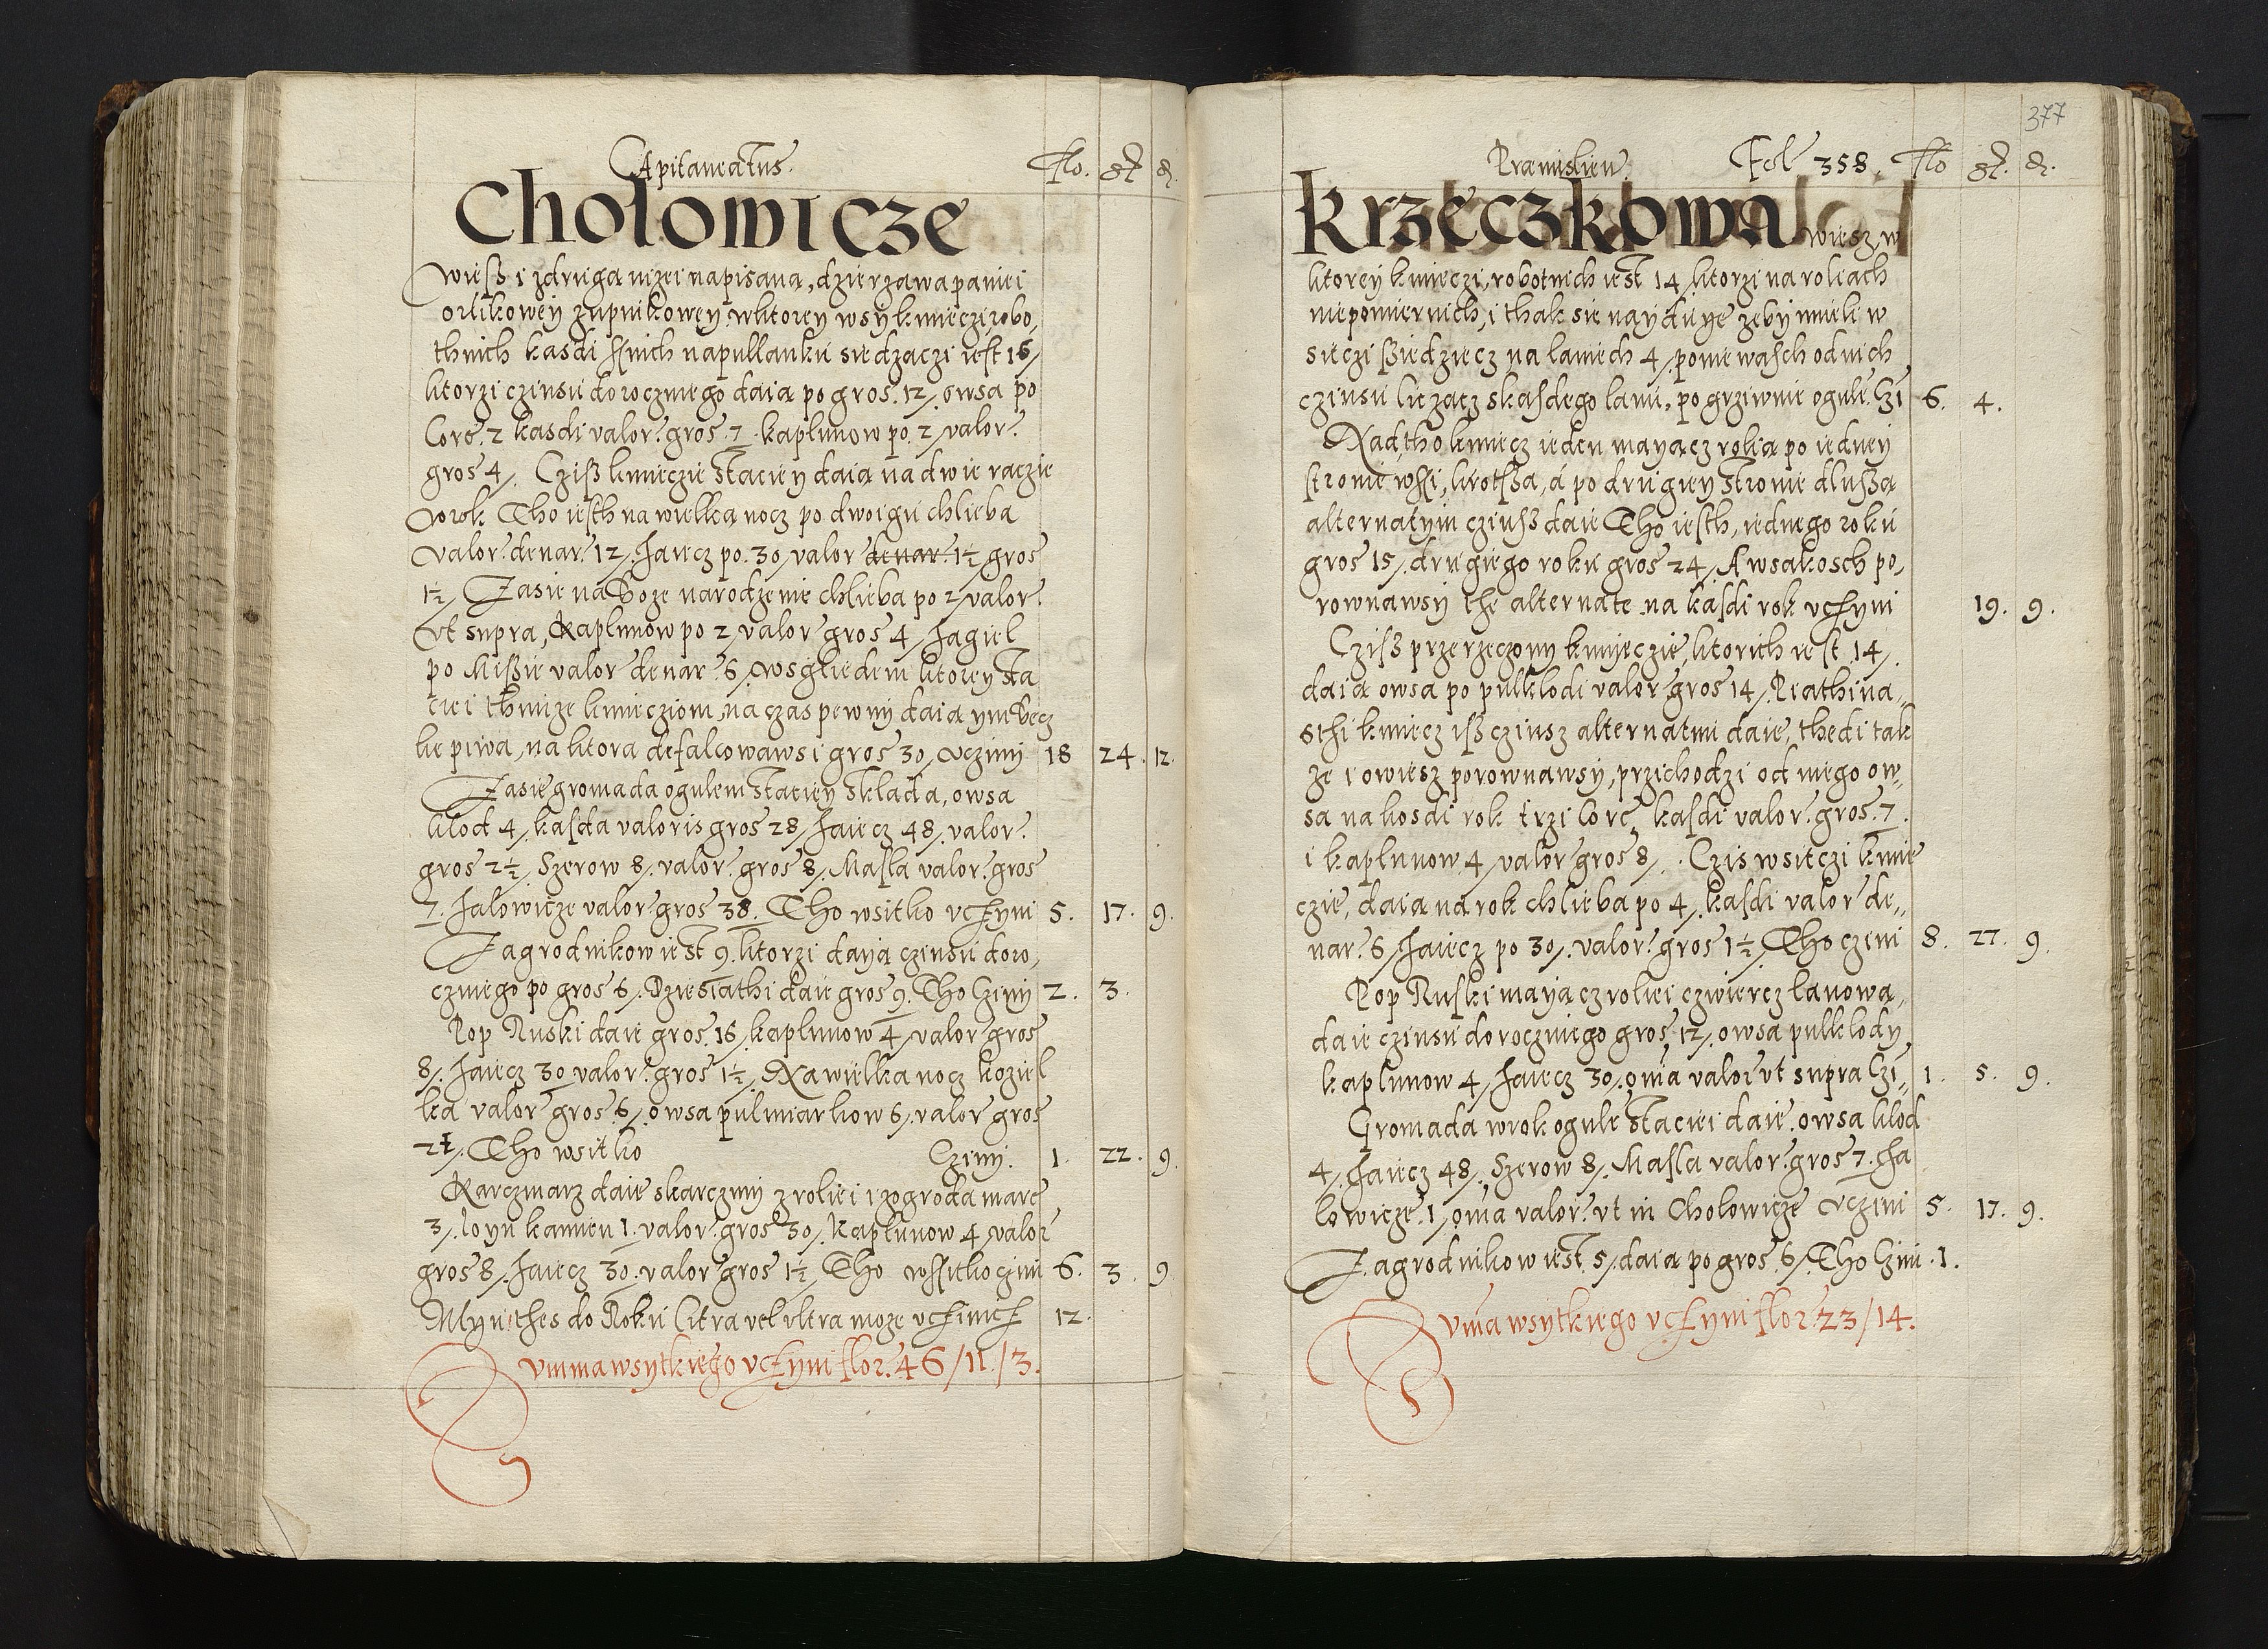 Capitaneatus. Flo. gr. d.
Cholowicze
Wieß i zdruga nizei napisana, dzierzawa paniei
orlikowey zupnikowey. w ktorey wsy kmieczi robo,
thnich kasdi ſnich na pullanku siedzaczi iest 16/
ktorzi czinsu dorocznego daia po gros. 12/. owsa po
Core. 2 kasdi valor. gros. 7. kaplunow po. 2/ valor.
gros 4/. Cziß kmieczie Staciey daia na dwie raczie
w rok Tho iesth na wielka nocz po dwoigu chlieba
valor. denar. 12/. Jaiecz po. 30/ valor denar. 1½/ gros
1½/ Zasie na Boze narodzenie chlieba po 2/ valor.
Vt supra, Kaplunow po 2/ valor gros 4/ Jagiel
po Mißie valor denar. 6/. wsgliedem ktorey sta
ciei thmize kmiecziom, na czas pewny daia ym becz
ke piwa, na ktora defalcowawsi gros 30/ vczini 18 24. 12.
Zasie gromada ogulem Staciey Sklada, owsa
klod 4/. kaſda valoris gros 28/ Jaiecz 48/. valor.
gros 2½/ Szerow 8/. valor. gros 8/. Maſla valor. gros
7. Jalowicze valor gros 38. Tho wsitko vcſyni 5. 17. 9.
Zagrodnikow iest 9. ktorzi daya czinsu doro,
cznego po gros 6/. Dziesiathi daie gros 9. Tho Cziny 2. 3.
Pop Ruski daie gros. 16/ kaplunow 4/ valor gros
8/. Jaiecz 30 valor. gros 1½/. Na wielka nocz koziel
ka valor gros 6/. owsa pulmiarkow 6/. valor gros
2½/. Tho wsitko Cziny. 1. 22. 9.
Karczmarz daie skarczmy z roliei i zogroda marc
3/. loyu kamien 1. valor. gros 30/. Kaplunow 4 valor
gros 8/. Jaiecz 30. valor gros 1½/ Tho wſſitko czini 6. 3. 9.
Mlyn ithes do Roku Citra vel vltra moze vcſinicſ 12.
Summa wsytkiego vcſyni flor. 46/11/3.
377
Pramislien. Fol 358. Flo gr. d.
Krzeczkowa wiesz, w
ktorey kmieczi, robotnich iest 14/ ktorzi na roliach
niepomiernich, i thak sie nayduye zeby mieli w
sitczi ßiedziecz na laniech 4/. poniewaſch od nich
czinsu liczacz skaſdego lanu, po grziwnie ogulē Czi 6. 4.
Nad tho kmiecz ieden mayacz rolia po iedney
stronie wſſi, krotßa, á po drugiey stronie dlußa
alternatym czinß daie Tho iesth, iednego roku
gros 15/. drugiego roku gros 24/. A wsakosch po,
rownawsy the alternate. na kaſdi rok vcſyni 19. 9.
Cziß przerzeczony kmyeczie, ktorich iest. 14/.
daia owsa po pulklodi valor gros 14/. Piathina,,
sthi kmiecz iß czinsz alternatim daie, thedi tak
ze i owiesz porownawsy, przichodzi od niego ow,,
sa na kosdi rok trzi Core, kaſdi valor. gros. 7.
i kaplunow 4/ valor gros 8/. Czis wsitczi kmie
czie, daia na rok chlieba po 4/. kaſdi valor de,,
nar. 6/ Jaiecz po 30/. valor. gros 1½/ Tho czini 8. 27. 9.
Pop Ruski mayacz roliei czwiercz lanowa,
daie czinsu dorocznego gros. 12/. owsa pulklody
kaplunow 4/ Jaiecz 30/. oīa valor vt supra Czi,, 1. 5. 9.
Gromada w rok ogulē Staciei daie. owsa klod
4/. Jaiecz 48/. Szerow 8/. Masla valor. gros 7. Ja
lowicze. 1/ oīa valor. vt in Cholowicze vczini 5. 17. 9.
Zagrodnikow iest. 5/. daia po gros. 6/. Tho Czini. 1.
Suma wsytkiego vcſyni flor. 23/14.